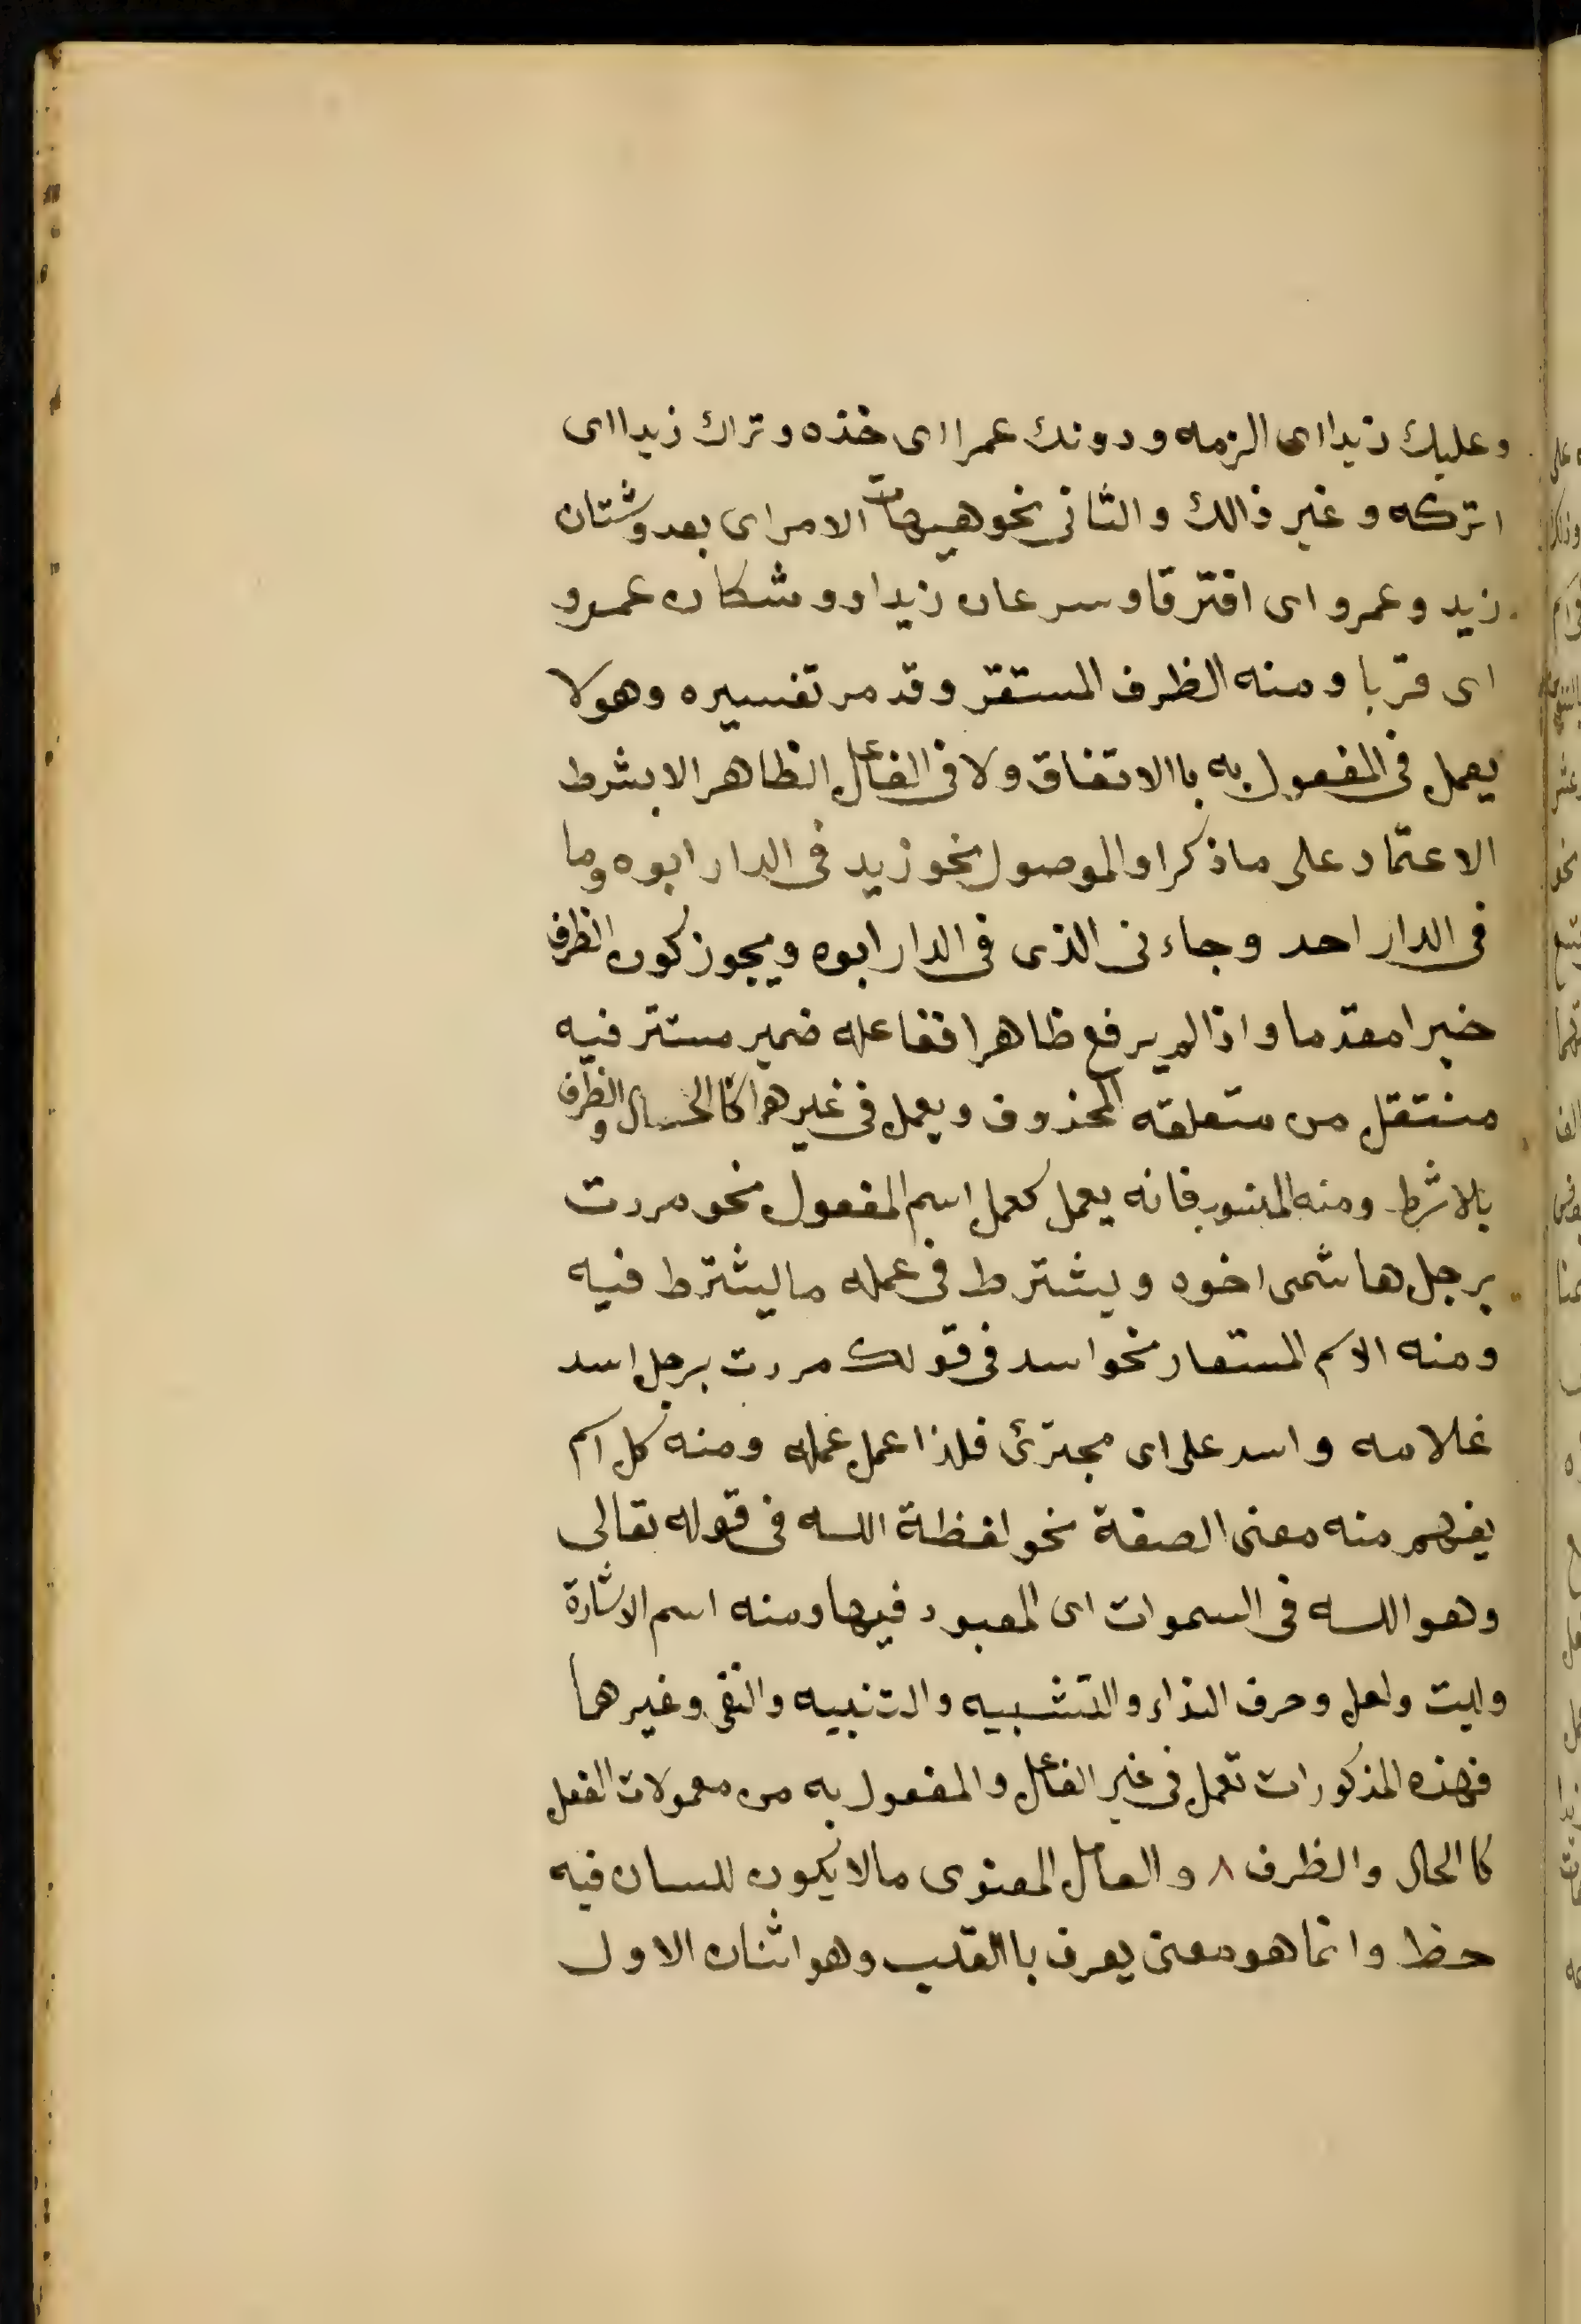 وعليك زيدا اى الزمه ودونك عمرا اى خذه وتراك زيدا اى
اتركه وغير ذالك والثانى نحو هيهات الامر اى بعد وشتان
زيد وعمرو اى افترقا وسرعان زيدا ووشكان عمرو
اى قربا ومنه الظرف المستقر وقد مر تفسيره وهو لا
يعمل فى المفعول به باالاتفاق ولا فى الفاعل الظاهر الا بشرط
الاعتماد على ما ذكر او الموصول نحو زيد فى الدار ابوه وما
فى الدار احد وجاءنى الذى فى الدار ابوه ويجوز كون الظرف
خبرا مقدما واذا لم يرفع ظاهرا ففاعله ضمير مستتر فيه
منتقل من متعلقه المحذوف ويعمل فى غيرهما كاالحال والظرف
بلا شرط ومنه المنسوب فانه يعمل كعمل اسم المفعول نحو مررت
برجل هاشمى اخوه ويشترط فى عمله ما يشترط فيه
ومنه الاسم المستعار نحو اسد فى قولك مررت برجل اسد
غلامه واسد على اى مجترئ فلذا عمل عمله ومنه كل اسم
يفهم منه معنى الصفة نحو لفظة الله فى قوله تعالى
وهو الله فى السموات اى المعبود فيها ومنه اسم الاشارة
وليت ولعل وحرف النداء والتشبيه والتنبيه والنفى وغيرهما
فهذه المذكورات تعمل فى غير الفاعل والمفعول به من معمولات الفعل
كاالحال والظرف ٨ والعامل المعنوى ما لا يكون للسان فيه
حظ وانما هو معنى يعرف باالقلب وهو اثنان الاول